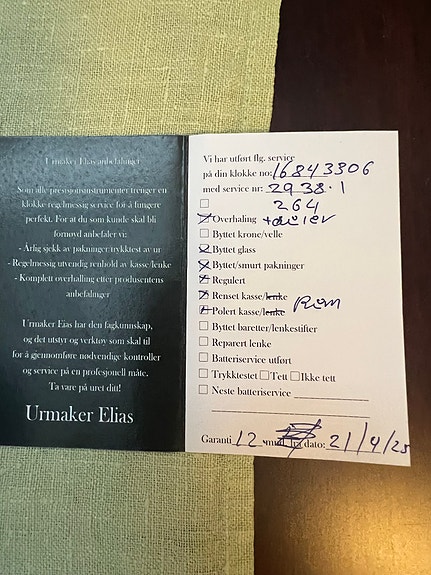 Urmaker Elias anbefalinger
Som alle presisjonsinstrumenter trenger en
klokke regelmessig service for å fungere
perfekt. For at du som kunde skal bli
fornøyd anbefaler vi:
- Årlig sjekk av pakninger/trykktest av ur
- Regelmessig utvendig renhold av kasse/lenke
- Komplett overhalling etter produsentens
anbefalinger
Urmaker Eias har den fagkunnskap,
og det utstyr og verktøy som skal til
for å gjennomføre nødvendige kontroller
og service på en profesjonell måte.
Ta vare på uret ditt!
Urmaker Elias
Vi har utført flg. service
på din klokke no: 16843306
med service nr: 2938.1
264
Overhaling
Byttet krone/velle
Byttet glass
Byttet/smurt pakninger
Regulert
Renset kasse/lenke
Polert kasse/lenke Rem
Byttet baretter/lenkestifter
Reparert lenke
Batteriservice utført
Trykktestet Tett Ikke tett
Neste batteriservice
Garanti 12 mnd. fra dato: 21/4/25